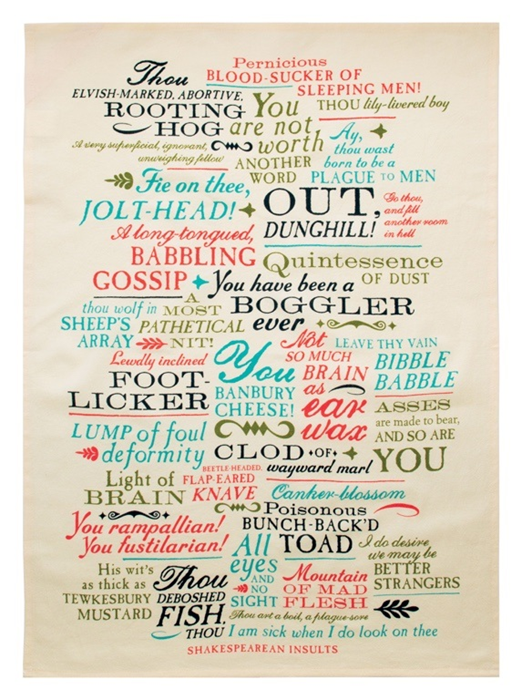 Pernicious
BLOOD-SUCKER OF
SLEEPING MEN!
Thou
ELVISH-MARKED, ABORTIVE,
ROOTING
HOG
You
are not
worth
ANOTHER
WORD
THOU lily-livered boy
A very superficial, ignorant,
unweighing fellow
Ay,
thou wast
born to be a
PLAGUE TO MEN
Fie on thee,
JOLT-HEAD!
OUT,
DUNGHILL!
Go thou,
and fill
another room
in hell
A long-tongued,
BABBLING
GOSSIP
Quintessence
OF DUST
You have been a
BOGGLER
ever
thou wolf in
SHEEP'S
ARRAY
A
MOST
PATHETICAL
NIT!
Not
SO MUCH
BRAIN
as
ear
wax
LEAVE THY VAIN
BIBBLE
BABBLE
Lewdly inclined
FOOT-
LICKER
You
BANBURY
CHEESE!
ASSES
are made to bear,
AND SO ARE
YOU
LUMP of foul
deformity
CLOD OF
wayward marl
BEETLE-HEADED,
FLAP-EARED
KNAVE
Light of
BRAIN
Canker-blossom
Poisonous
BUNCH-BACK'D
TOAD
You rampallian!
You fustilarian!
All
eyes
AND
NO
SIGHT
I do desire
we may be
BETTER
STRANGERS
His wit's
as thick as
TEWKESBURY
MUSTARD
Thou
DEBOSHED
FISH,
THOU
Mountain
OF MAD
FLESH
Thou art a boil, a plague-sore
I am sick when I do look on thee
SHAKESPEAREAN INSULTS